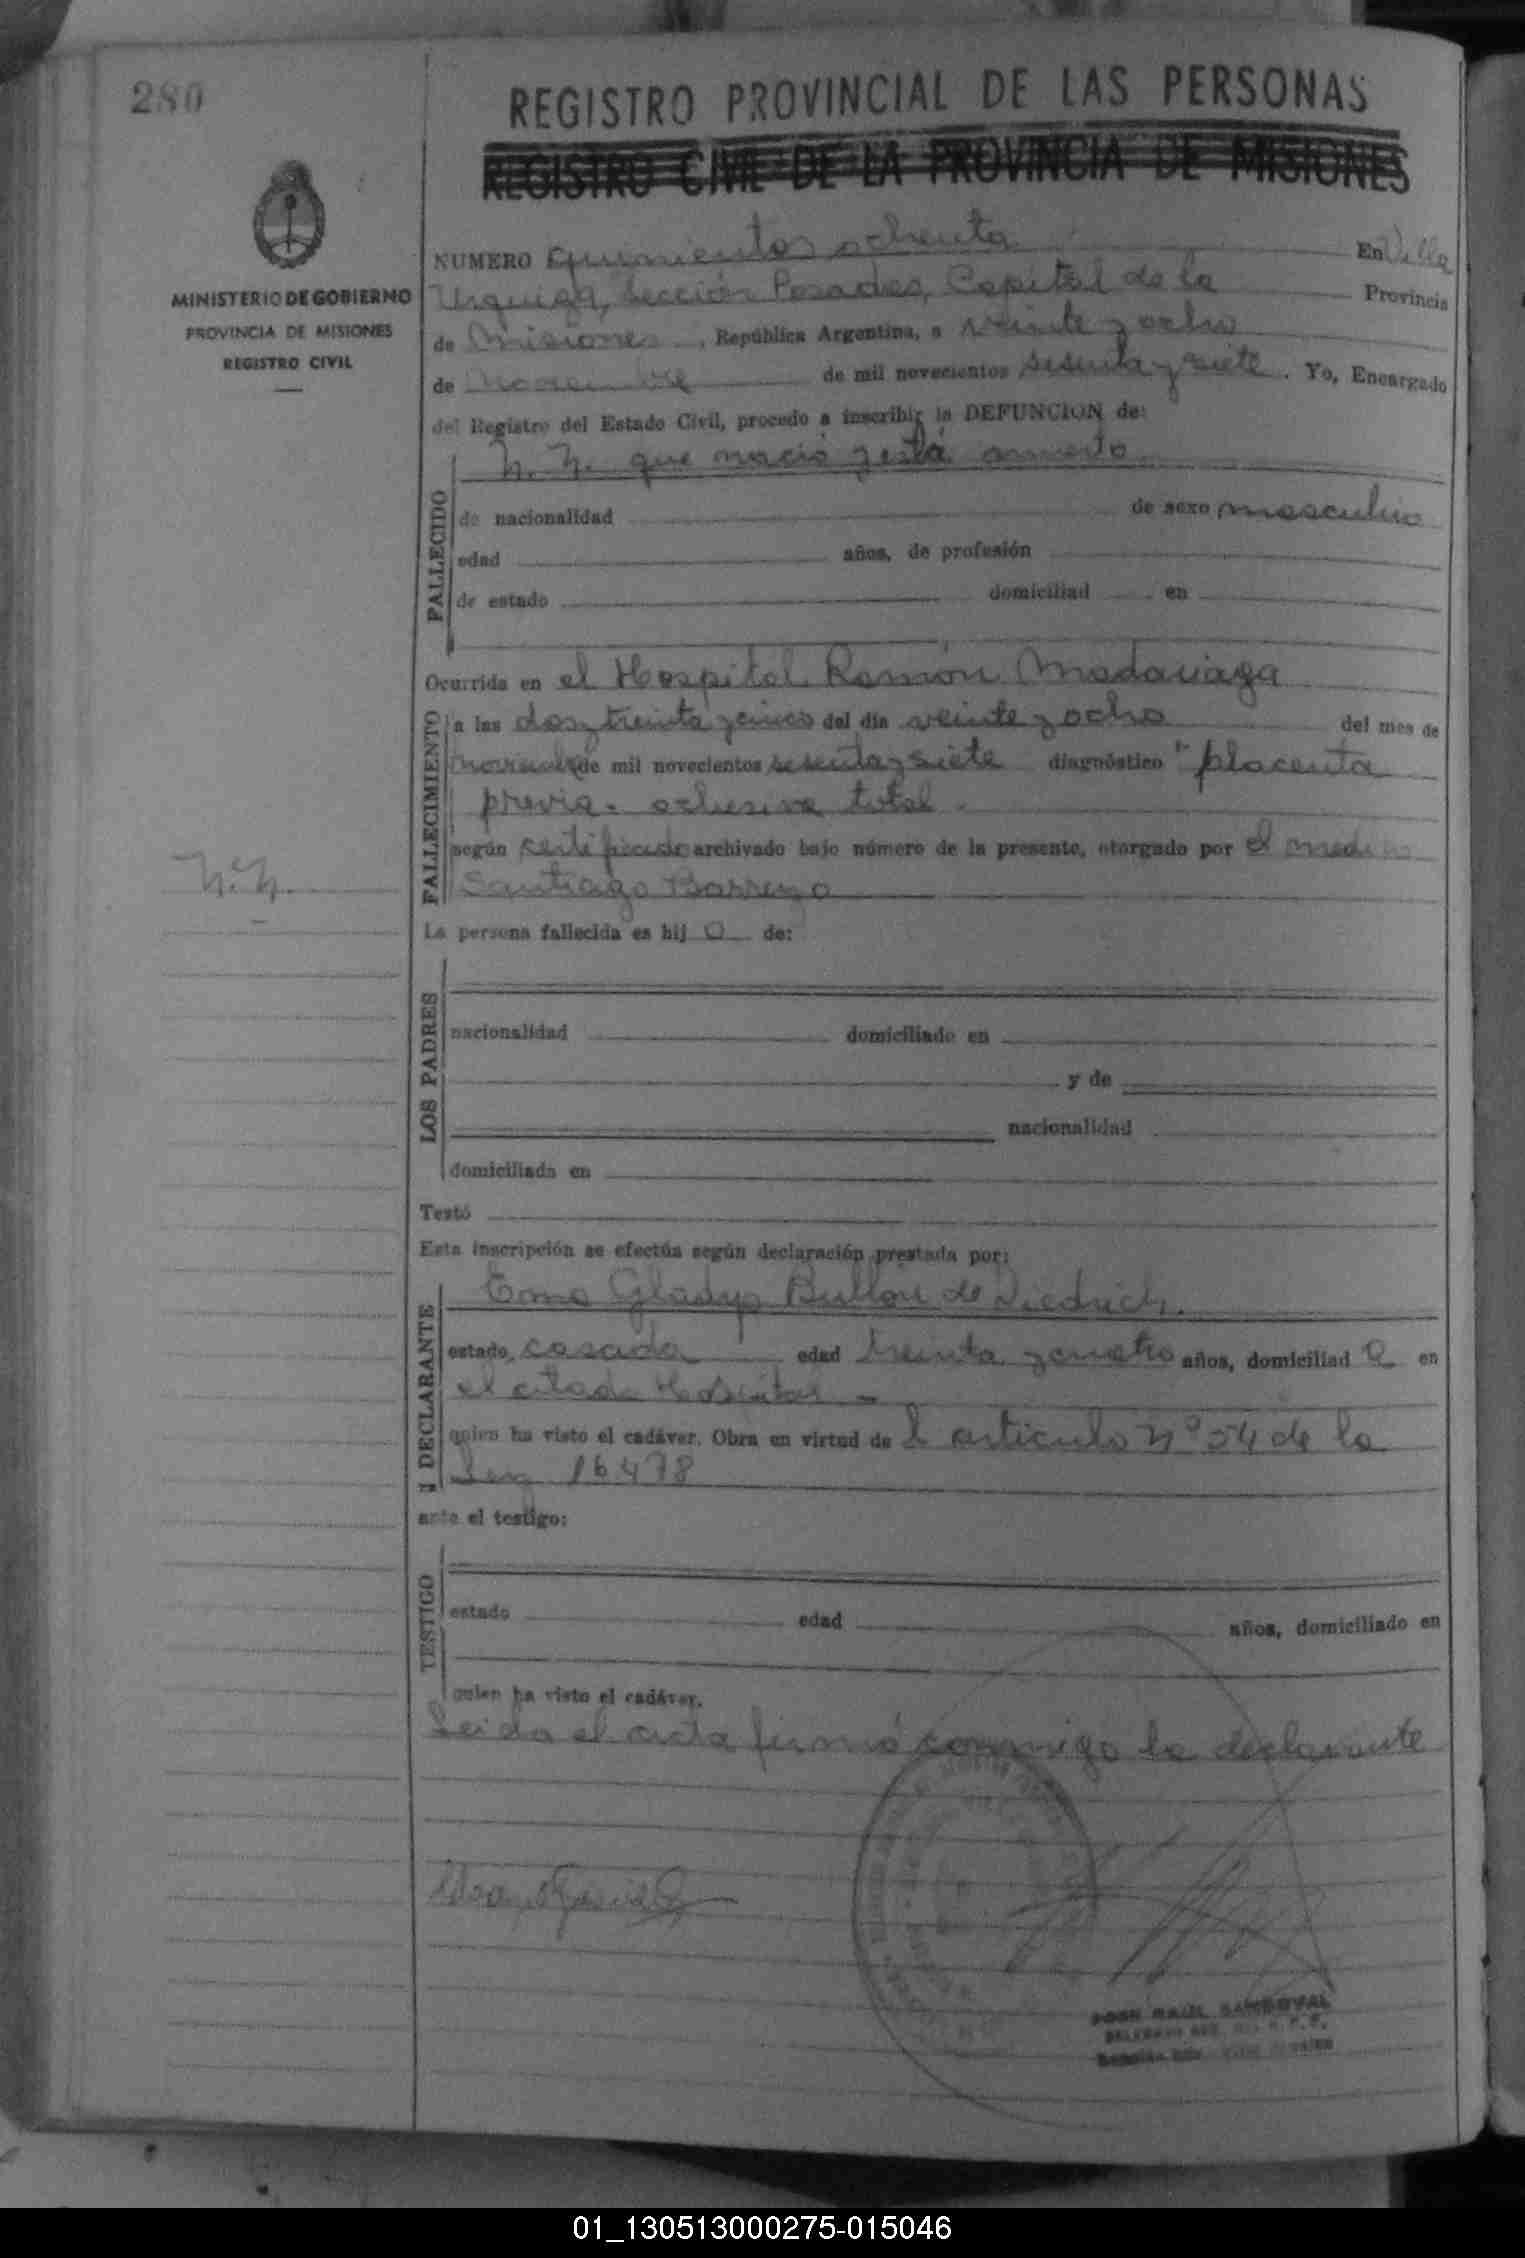 280
REGISTRO PROVINCIAL DE LAS PERSONAS
REGISTRO CIVIL DE LA PROVINCIA DE MISIONES
MINISTERIO DE GOBIERNO
PROVINCIA DE MISIONES
REGISTRO CIVIL
NUMERO quinientos ochenta En Villa
Urquiza, Sección Posadas, Capital de la Provincia
de Misiones, República Argentina, a veinte y ocho
de noviembre de mil novecientos sesenta y siete. Yo, Encargado
del Registro del Estado Civil, procedo a inscribir la DEFUNCION de:
FALLECIDO
N. N. que nació y está muerto
de nacionalidad de sexo masculino
edad años, de profesión
de estado domiciliad en
Ocurrida en el Hospital Ramón Madariaga
FALLECIMIENTO
a las dos y treinta y cinco del día veinte y ocho del mes de
noviembre de mil novecientos sesenta y siete diagnóstico "placenta
previa - oclusiva total.
según certificado archivado bajo número de la presente, otorgado por el medico
Santiago Barreyro
N. N.
La persona fallecida es hij o de:
LOS PADRES
nacionalidad domiciliado en
y de
nacionalidad
domiciliada en
Testó
Esta inscripción se efectúa según declaración prestada por:
DECLARANTE
Gladys de
estado, casada edad treinta y cuatro años, domiciliad a en
el citado Hospital -
quien ha visto el cadáver. Obra en virtud de l articulo Nº 54 de la
Ley 16.478
ante el testigo:
TESTIGO
estado edad años, domiciliado en
quien ha visto el cadáver.
Leida el acta firmó conmigo la declarante
JOSE RAUL SANDOVAL
01_130513000275-015046